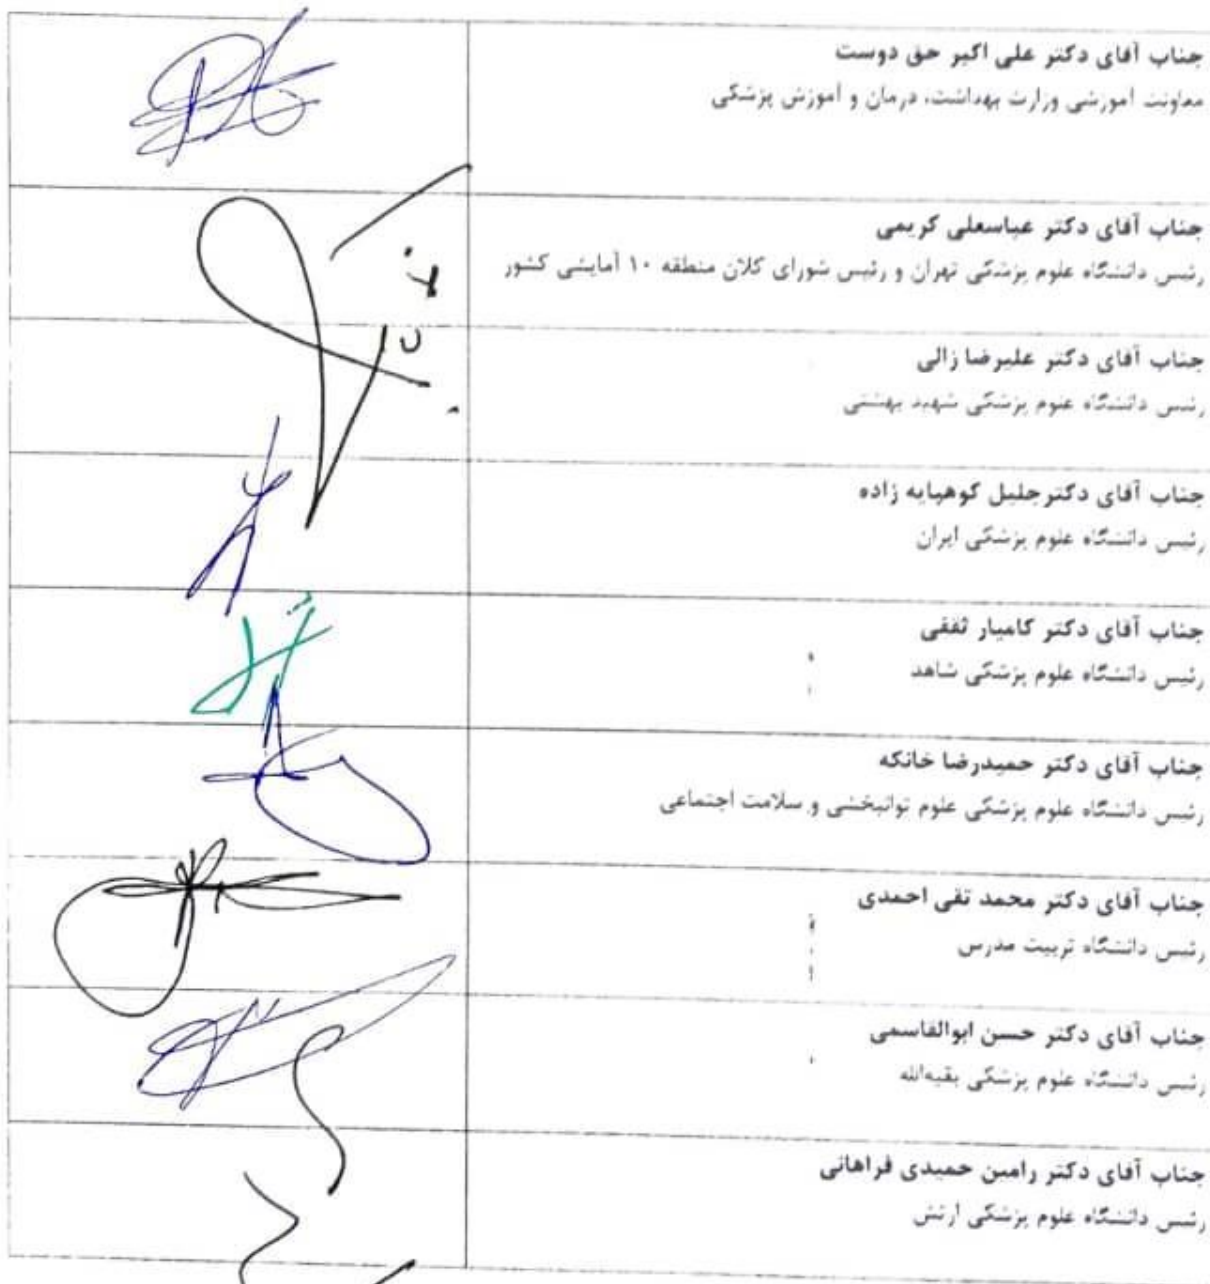 جناب آقای دکتر علی اکبر حق دوست
معاونت آموزشی وزارت بهداشت، درمان و آموزش پزشکی
جناب آقای دکتر عباسعلی کریمی
رئیس دانشگاه علوم پزشکی تهران و رئیس شورای کلان منطقه ۱۰ آمایشی کشور
جناب آقای دکتر علیرضا زالی
رئیس دانشگاه علوم پزشکی شهید بهشتی
جناب آقای دکتر جلیل کوهپایه زاده
رئیس دانشگاه علوم پزشکی ایران
جناب آقای دکتر کامیار ثقفی
رئیس دانشگاه علوم پزشکی شاهد
جناب آقای دکتر حمیدرضا خانکه
رئیس دانشگاه علوم پزشکی علوم توانبخشی و سلامت اجتماعی
جناب آقای دکتر محمد تقی احمدی
رئیس دانشگاه تربیت مدرس
جناب آقای دکتر حسن ابوالقاسمی
رئیس دانشگاه علوم پزشکی بقیه‌الله
جناب آقای دکتر رامین حمیدی فراهانی
رئیس دانشگاه علوم پزشکی ارتش